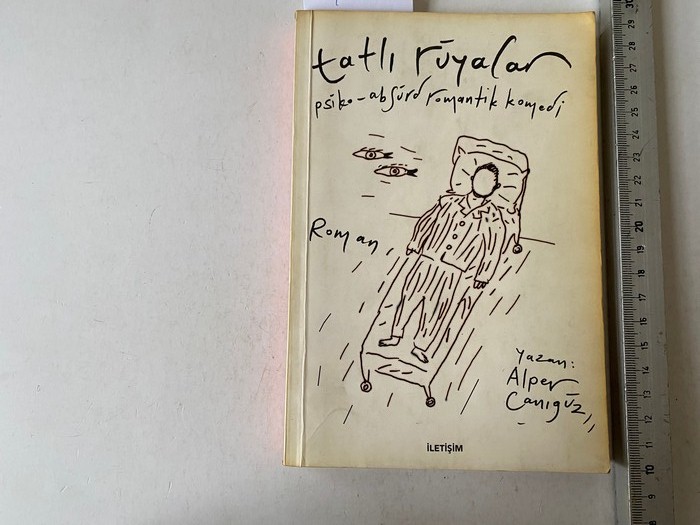 tatlı rüyalar
psiko-absürd romantik komedi
Roman
yazan:
Alper
Canıgüz
İLETİŞİM
30
29
28
27
26
25
24
23
22
21
20
19
18
17
16
15
14
13
12
11
10
9
8